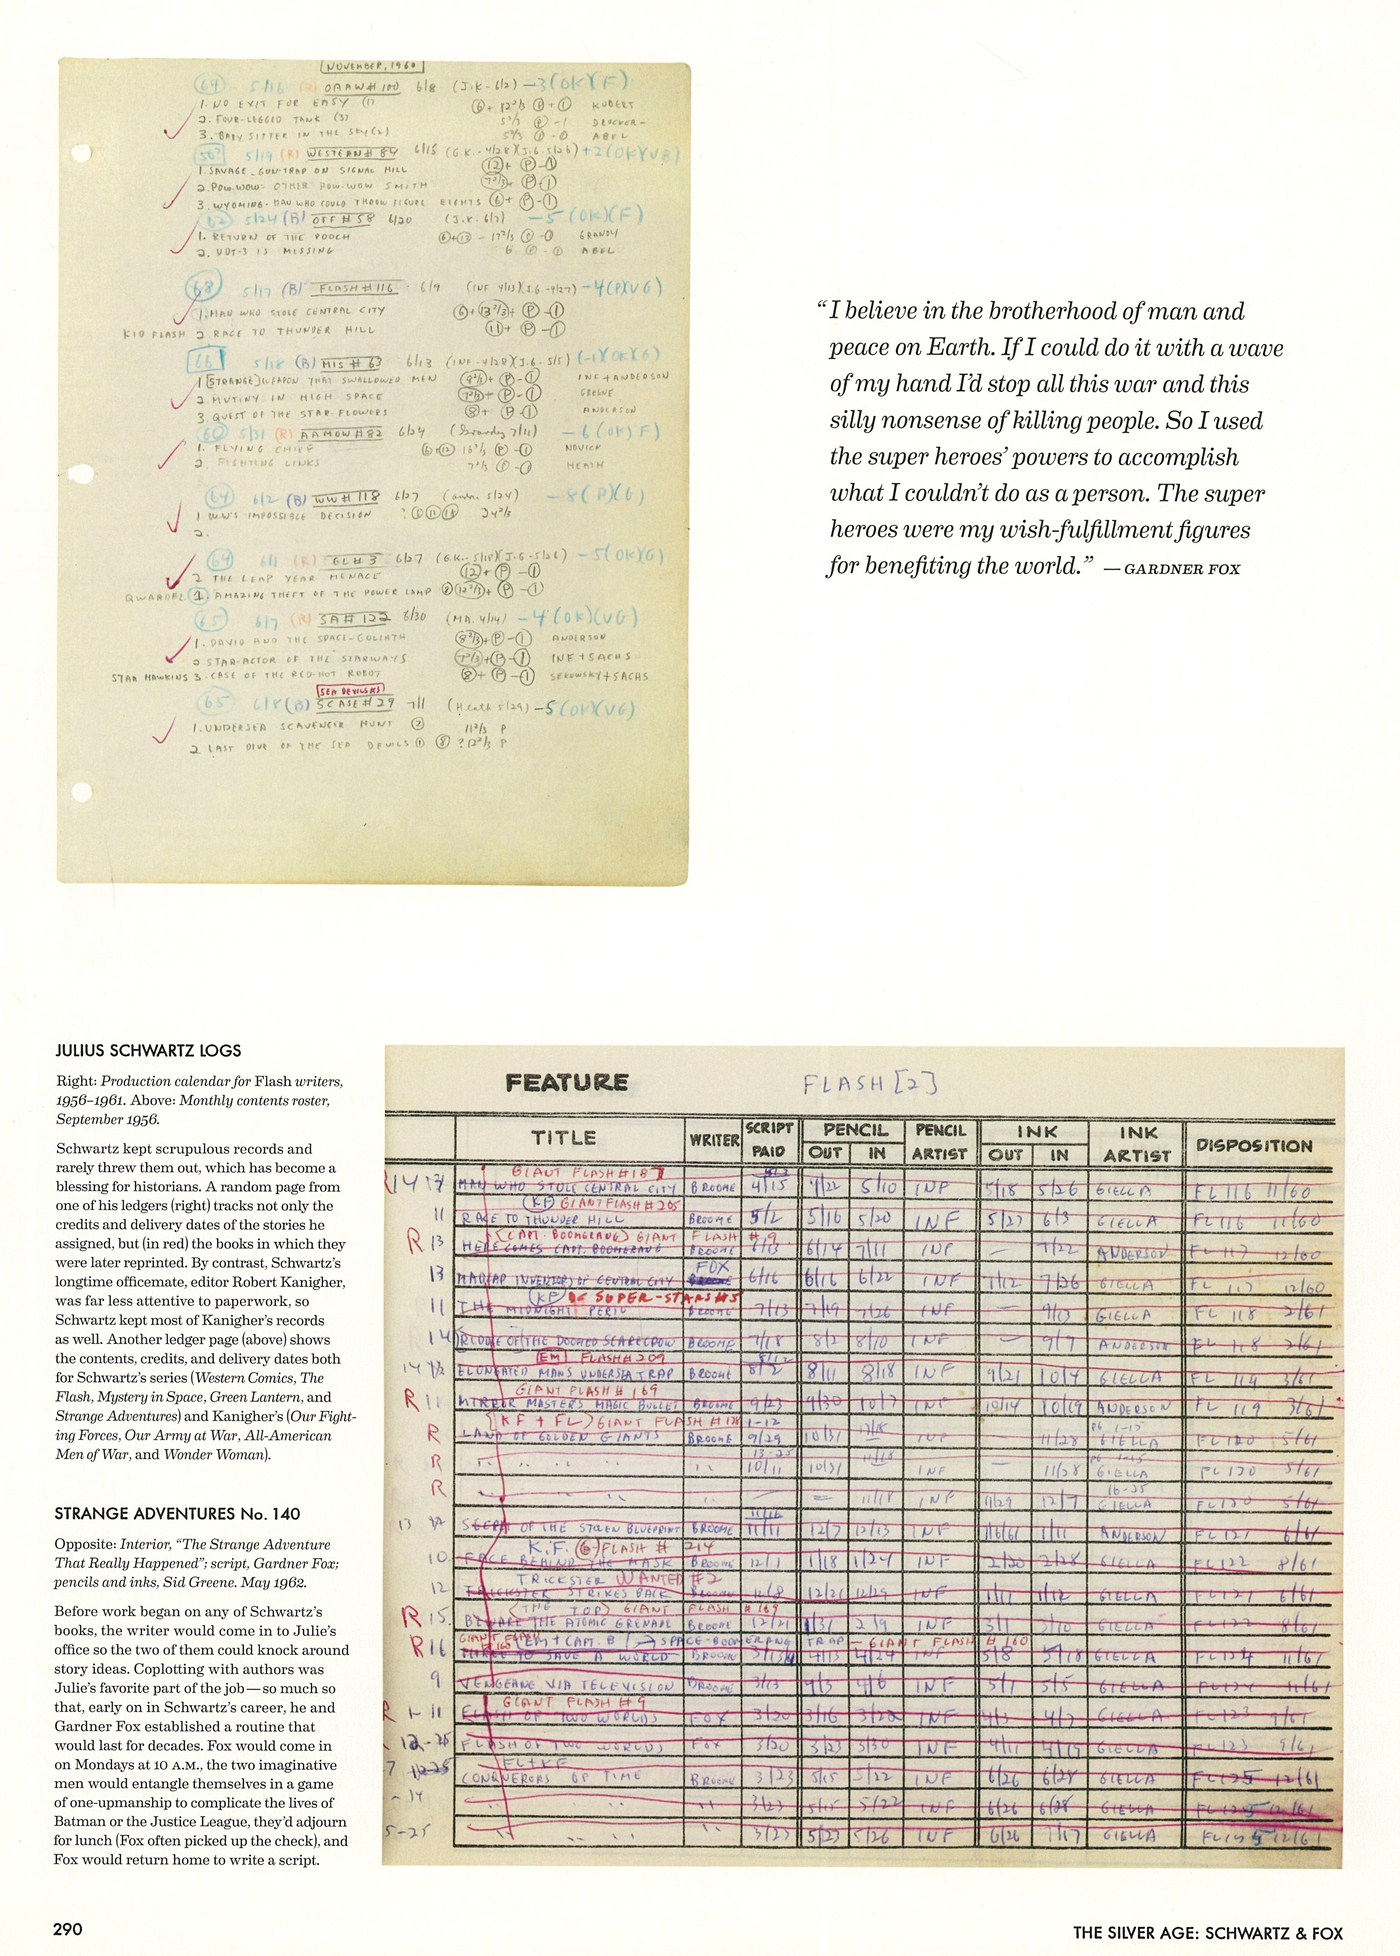 NOVEMBER, 1960
64 5/16 (R) OAAW# 100 6/8 (J.K. 6/2) -3(OK)(F)
1. NO EXIT FOR EASY (1) KUBERT
2. FOUR-LEGGED TANK (3) DRUCKER
3. BABY SITTER IN THE SKY (2) ABEL
50? 5/19 (R) WESTERN# 84 6/15 (G.K.-4/28)(J.G.-5/26) +2(OK)(VG)
1. SAVAGE-GUN-TRAP ON SIGNAL HILL
2. POW-WOW: OTHER POW-WOW SMITH
3. WYOMING-MAN WHO COULD THROW FIGURE EIGHTS
62 5/24 (B) OFF#58 6/20 (J.K. 6/7) -5(OK)(F)
1. RETURN OF THE POOCH GRANDY
2. UDT-3 IS MISSING ABEL
68 5/17 (B) FLASH#116 6/9 (INF 4/13)(J.G.-4/27) -4(P)(VG)
1. MAN WHO STOLE CENTRAL CITY
KID FLASH 2. RACE TO THUNDER HILL
66 5/18 (B) MIS # 63 6/13 (INF-4/28)(J.G-5/5) (-1)(OK)(G)
1. [STRANGE] WEAPON THAT SWALLOWED MEN INF+ANDERSON
2. MUTINY IN HIGH SPACE GREENE
3. QUEST OF THE STAR-FLOWERS ANDERSON
60 5/31 (R) AAMOW#82 6/24 (Grandy 7/11) -6(OK)F)
1. FLYING CHIEF NOVICK
2. FIGHTING LINKS HEATH
64 6/2 (B) WW#118 6/27 (Andru 5/24) -8(P)(G)
1 WW'S IMPOSSIBLE DECISION
2.
64 6/1 (R) GL#3 6/27 (G.K.-5/18)(J.G-5/26) -5(OK)(G)
2 THE LEAP YEAR MENACE
QWARDEZ 1 AMAZING THEFT OF THE POWER LAMP
65 6/7 (R) SA#122 6/30 (MA. 4/14) -4(OK)(VG)
1. DAVID AND THE SPACE-GOLIATH ANDERSON
2 STAR-ACTOR OF THE STARWAYS INF+SACHS
STAR HAWKINS 3. CASE OF THE RED-HOT ROBOT SEKOWSKY+SACHS
SEA DEVILS#3
65 6/8 (B) SCASE#29 7/1 (Heath 5/29) -5(OK)(VG)
1. UNDERSEA SCAVENGER HUNT (2)
2 LAST DIVE OF THE SEA DEVILS
“I believe in the brotherhood of man and
peace on Earth. If I could do it with a wave
of my hand I’d stop all this war and this
silly nonsense of killing people. So I used
the super heroes’ powers to accomplish
what I couldn’t do as a person. The super
heroes were my wish-fulfillment figures
for benefiting the world.” —GARDNER FOX
JULIUS SCHWARTZ LOGS
Right: Production calendar for Flash writers,
1956–1961. Above: Monthly contents roster,
September 1956.
Schwartz kept scrupulous records and
rarely threw them out, which has become a
blessing for historians. A random page from
one of his ledgers (right) tracks not only the
credits and delivery dates of the stories he
assigned, but (in red) the books in which they
were later reprinted. By contrast, Schwartz’s
longtime officemate, editor Robert Kanigher,
was far less attentive to paperwork, so
Schwartz kept most of Kanigher’s records
as well. Another ledger page (above) shows
the contents, credits, and delivery dates both
for Schwartz’s series (Western Comics, The
Flash, Mystery in Space, Green Lantern, and
Strange Adventures) and Kanigher’s (Our Fight-
ing Forces, Our Army at War, All-American
Men of War, and Wonder Woman).
STRANGE ADVENTURES No. 140
Opposite: Interior, “The Strange Adventure
That Really Happened”; script, Gardner Fox;
pencils and inks, Sid Greene. May 1962.
Before work began on any of Schwartz’s
books, the writer would come in to Julie’s
office so the two of them could knock around
story ideas. Coplotting with authors was
Julie’s favorite part of the job—so much so
that, early on in Schwartz’s career, he and
Gardner Fox established a routine that
would last for decades. Fox would come in
on Mondays at 10 A.M., the two imaginative
men would entangle themselves in a game
of one-upmanship to complicate the lives of
Batman or the Justice League, they’d adjourn
for lunch (Fox often picked up the check), and
Fox would return home to write a script.
FEATURE FLASH [2]
TITLE WRITER SCRIPT PAID PENCIL OUT IN PENCIL ARTIST INK OUT IN INK ARTIST DISPOSITION
GIANT FLASH # 187
MAN WHO STOLE CENTRAL CITY BROOME 4/15 4/22 5/10 INF 5/18 5/26 GIELLA FL 116 11/60
(KF) GIANT FLASH # 205
11 RACE TO THUNDER HILL BROOME 5/2 5/16 5/20 INF 5/27 6/3 GIELLA FL 116 11/60
(CAPT. BOOMERANG) GIANT FLASH #9
R 13 HERE COMES CAPT. BOOMERANG BROOME 6/13 6/14 7/11 INF — 7/22 ANDERSON FL 117 12/60
FOX
13 MADCAP INVENTORS OF CENTRAL CITY 6/16 6/16 6/22 INF 7/12 7/26 GIELLA FL 117 12/60
(KF) DC SUPER-STARS #5
11 THE MIDNIGHT PERIL BROOME 7/13 7/19 7/26 INF — 9/13 GIELLA FL 118 2/61
14 RIDDLE OF THE DOOMED SCARECROW BROOME 7/18 8/2 8/10 INF — 9/7 ANDERSON FL 118 2/61
EM FLASH # 209
ELONGATED MAN'S UNDERSEA TRAP BROOME 8/2 8/11 8/18 INF 9/21 10/4 GIELLA FL 119 3/61
GIANT FLASH # 169
R 11 MIRROR MASTER'S MAGIC BULLET BROOME 9/23 9/30 10/17 INF 10/14 10/19 ANDERSON FL 119 3/61
(KF + FL) GIANT FLASH # 178 1-12
R LAND OF GOLDEN GIANTS BROOME 9/29 10/31 INF 11/28 GIELLA FL 120 5/61
13-25
R " " " " 10/11 10/31 INF — 11/28 GIELLA FL 120 5/61
16-25
R " " " 11/18 INF 11/29 12/7 GIELLA FL 120 5/61
OF THE STOLEN BLUEPRINT BROOME 11/11 12/7 12/13 INF 1/6/61 1/11 ANDERSON FL 121 6/61
K.F. (G) FLASH # 214
10 FACE BEHIND THE MASK BROOME 12/1 1/18 1/24 INF 2/20 2/28 GIELLA FL 122 8/61
TRICKSTER WANTED #2
12 TRICKSTER STRIKES BACK BROOME 12/8 12/21 12/29 INF 1/11 1/12 GIELLA FL 121 6/61
(THE TOP) GIANT FLASH # 169
R 15 BEWARE THE ATOMIC GRENADE BROOME 12/21 1/31 2/9 INF 3/1 3/10 GIELLA FL 122 8/61
GIANT FLASH # 160 (EM + CAPT. B) → SPACE-BOOMERANG TRAP — GIANT FLASH # 160
R 16 TO SAVE A WORLD BROOME 4/13 4/24 INF 5/8 5/18 GIELLA FL 124 11/61
9 VENGEANCE VIA TELEVISION BROOME 3/13 4/3 4/6 INF 5/1 5/5 GIELLA FL 124 11/61
GIANT FLASH # 9
R 1-11 FLASH OF TWO WORLDS FOX 3/20 3/16 3/22 INF 4/3 4/7 GIELLA FL 123 9/61
12-25 FLASH OF TWO WORLDS FOX 3/20 3/23 3/30 INF 4/11 4/19 GIELLA FL 123 9/61
FL+KF
CONQUERORS OF TIME BROOME 3/23 5/15 5/22 INF 6/26 6/28 GIELLA FL 125 12/61
-14 " " " " 3/23 5/15 5/22 INF 6/26 6/28 GIELLA FL 125 12/61
5-25 " " " " 3/23 5/23 5/26 INF 6/26 7/17 GIELLA FL 125 12/61
290
THE SILVER AGE: SCHWARTZ & FOX